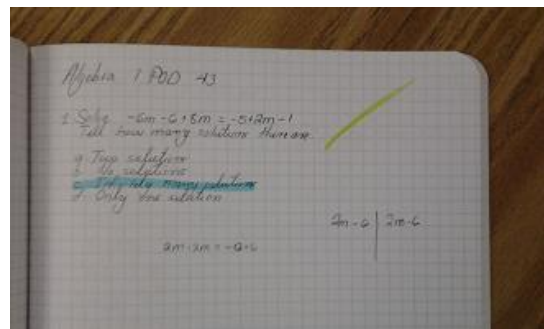 Algebra 1 POD 43
1. Solve -6m-6+8m = -5+2m-1
Tell how many solutions there are.
a. Two solutions
b. No solutions
c. Infinitely many solutions
d. Only one solution
2m-6 | 2m-6